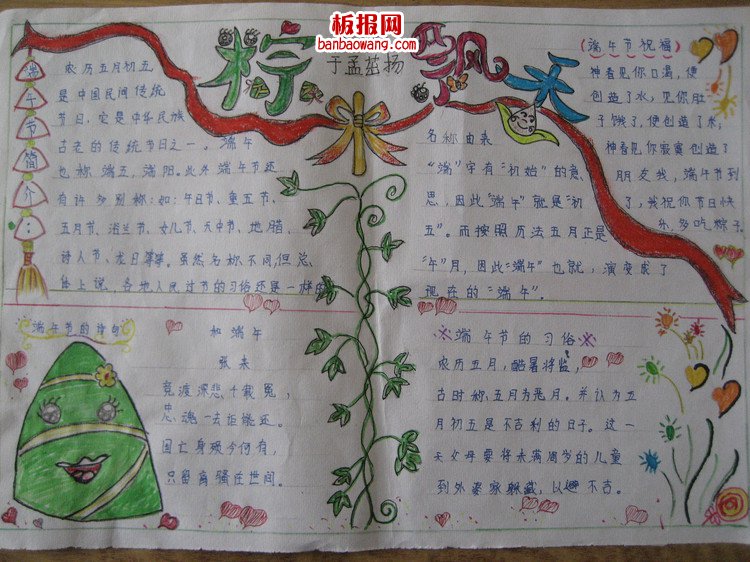 板报网
banbaowang.com
粽飘香
于孟茹扬
端午节简介:
农历五月初五
是中国民间传统
节日,它是中华民族
古老的传统节日之一。端午
也称端五,端阳。此外端午节还
有许多别称:如:午日节、重五节、
五月节、浴兰节、女儿节、天中节、地腊、
诗人节、龙日等等。虽然名称不同,但总
体上说,各地人民过节的习俗还是一样的
名称由来
“端”字有“初始”的意
思,因此“端午”就是“初
五”。而按照历法五月正是
“午”月,因此“端午”也就演变成了
现在的“端午”。
(端午节祝福)
神看见你口渴,便
创造了水;见你肚
子饿了,便创造了米;
神看见你寂寞创造了
朋友我,端午节到
了,我祝你节日快
乐,多吃粽子
端午节的诗句
和端午
张耒
竞渡深悲千载冤,
忠魂一去讵能还。
国亡身殒今何有,
只留离骚在世间。
端午节的习俗
农历五月,酷暑将临,
古时称五月为恶月。并认为五
月初五是不吉利的日子。这一
天父母要将未满周岁的儿童
到外婆家躲藏,以避不吉。